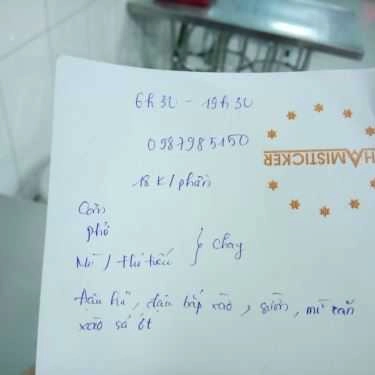 6h30 - 19h30
0987985150
18K/phần
HAMISTICKER
Cơm
phở
Mì / Hủ tiếu } chay
Đậu hũ, đậu bắp xào, sườn, mì căn
xào sả ớt